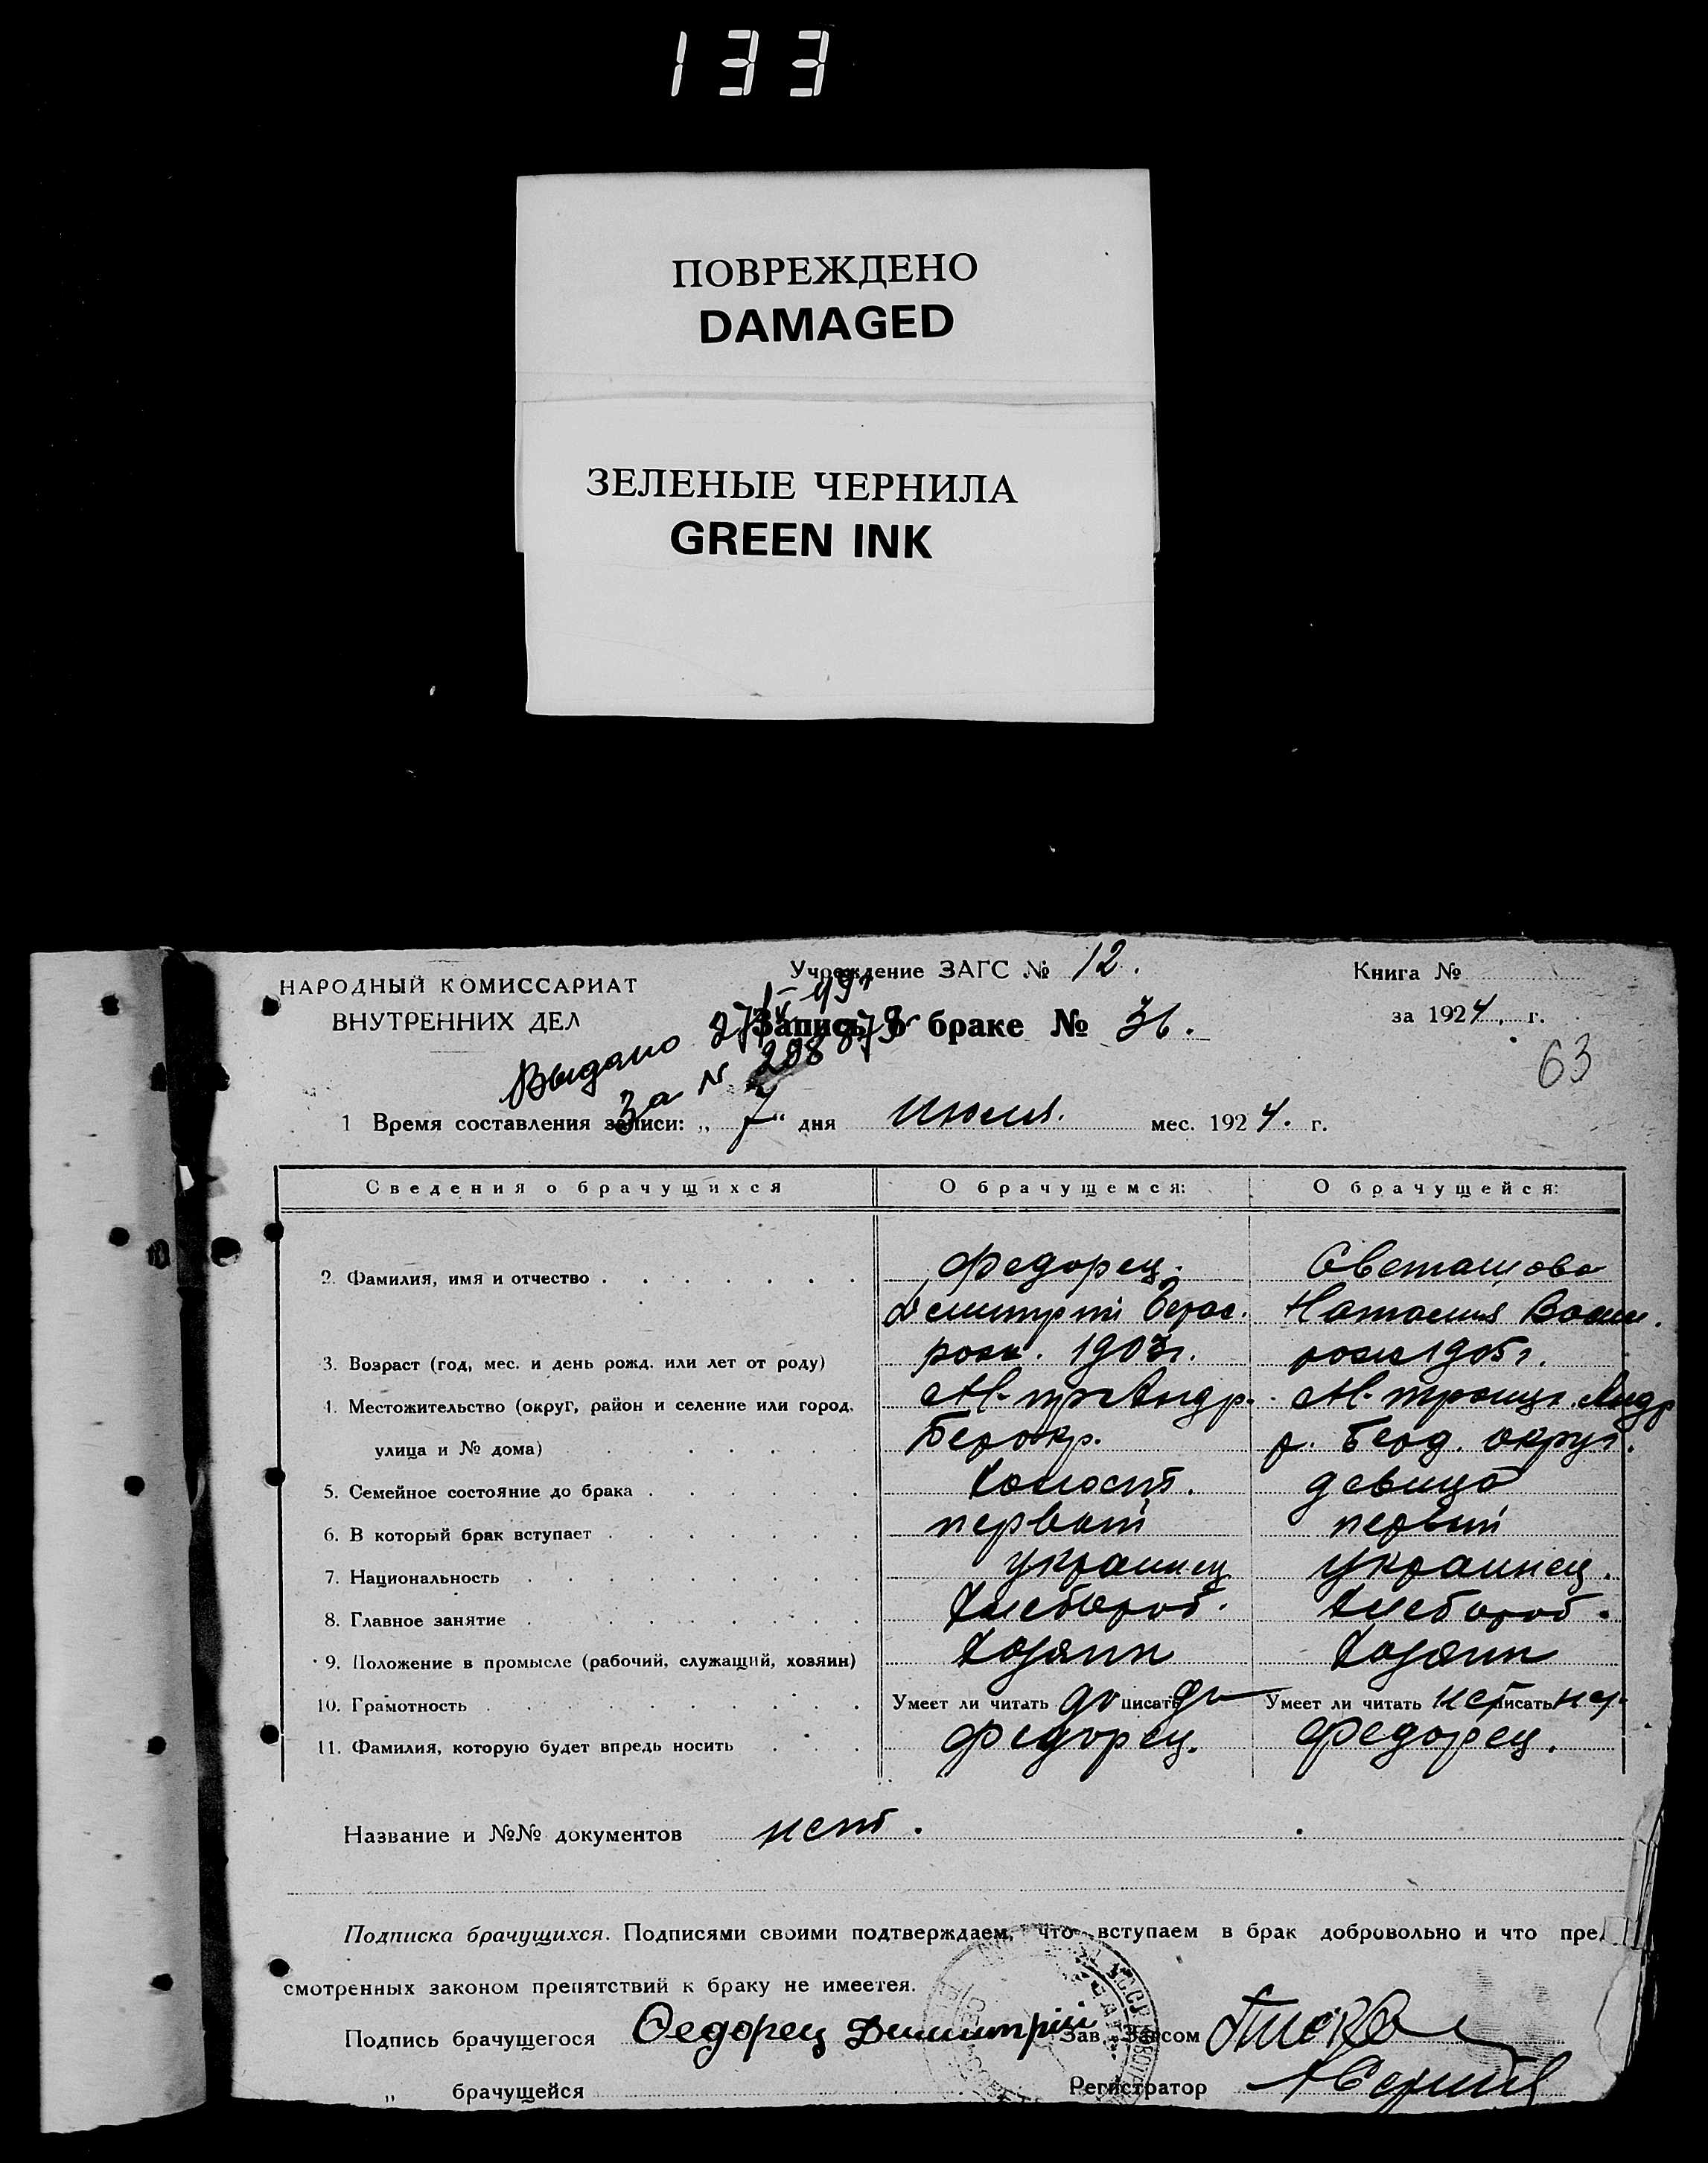 133
ПОВРЕЖДЕНО
DAMAGED
ЗЕЛЕНЫЕ ЧЕРНИЛА
GREEN INK
НАРОДНЫЙ КОМИССАРИАТ
ВНУТРЕННИХ ДЕЛ
Учреждение ЗАГС № 12.
Книга №
Запись о браке № 36.
за 1924, г.
63
Выдано
за N
1 Время составления записи: „ 7 “ дня июля. мес. 1924. г.
Сведения о брачущихся О брачущемся: О брачущейся:
2. Фамилия, имя и отчество Федорец. Светашова
Дмитрий Наталия
3. Возраст (год, мес. и день рожд. или лет от роду) рожд. 1903г. рожд 1905г.
4. Местожительство (округ, район и селение или город, М- Андр. М- троицк. Андр
улица и № дома) Бердокр. р. Берд. округ.
5. Семейное состояние до брака холост. девица
6. В который брак вступает первый первый
7. Национальность украинец украинец.
8. Главное занятие хлебороб. хлебороб.
9. Положение в промысле (рабочий, служащий, хозяин) хозяин хозяин
10. Грамотность Умеет ли читать да писать да Умеет ли читать нет писать нет
11. Фамилия, которую будет впредь носить Федорец. Федорец.
Название и №№ документов нет.
Подписка брачущихся. Подписями своими подтверждаем, что вступаем в брак добровольно и что пре
смотренных законом препятствий к браку не имеется.
Подпись брачущегося Федорец Димитрий Зав. Загсом
„ брачущейся Регистратор